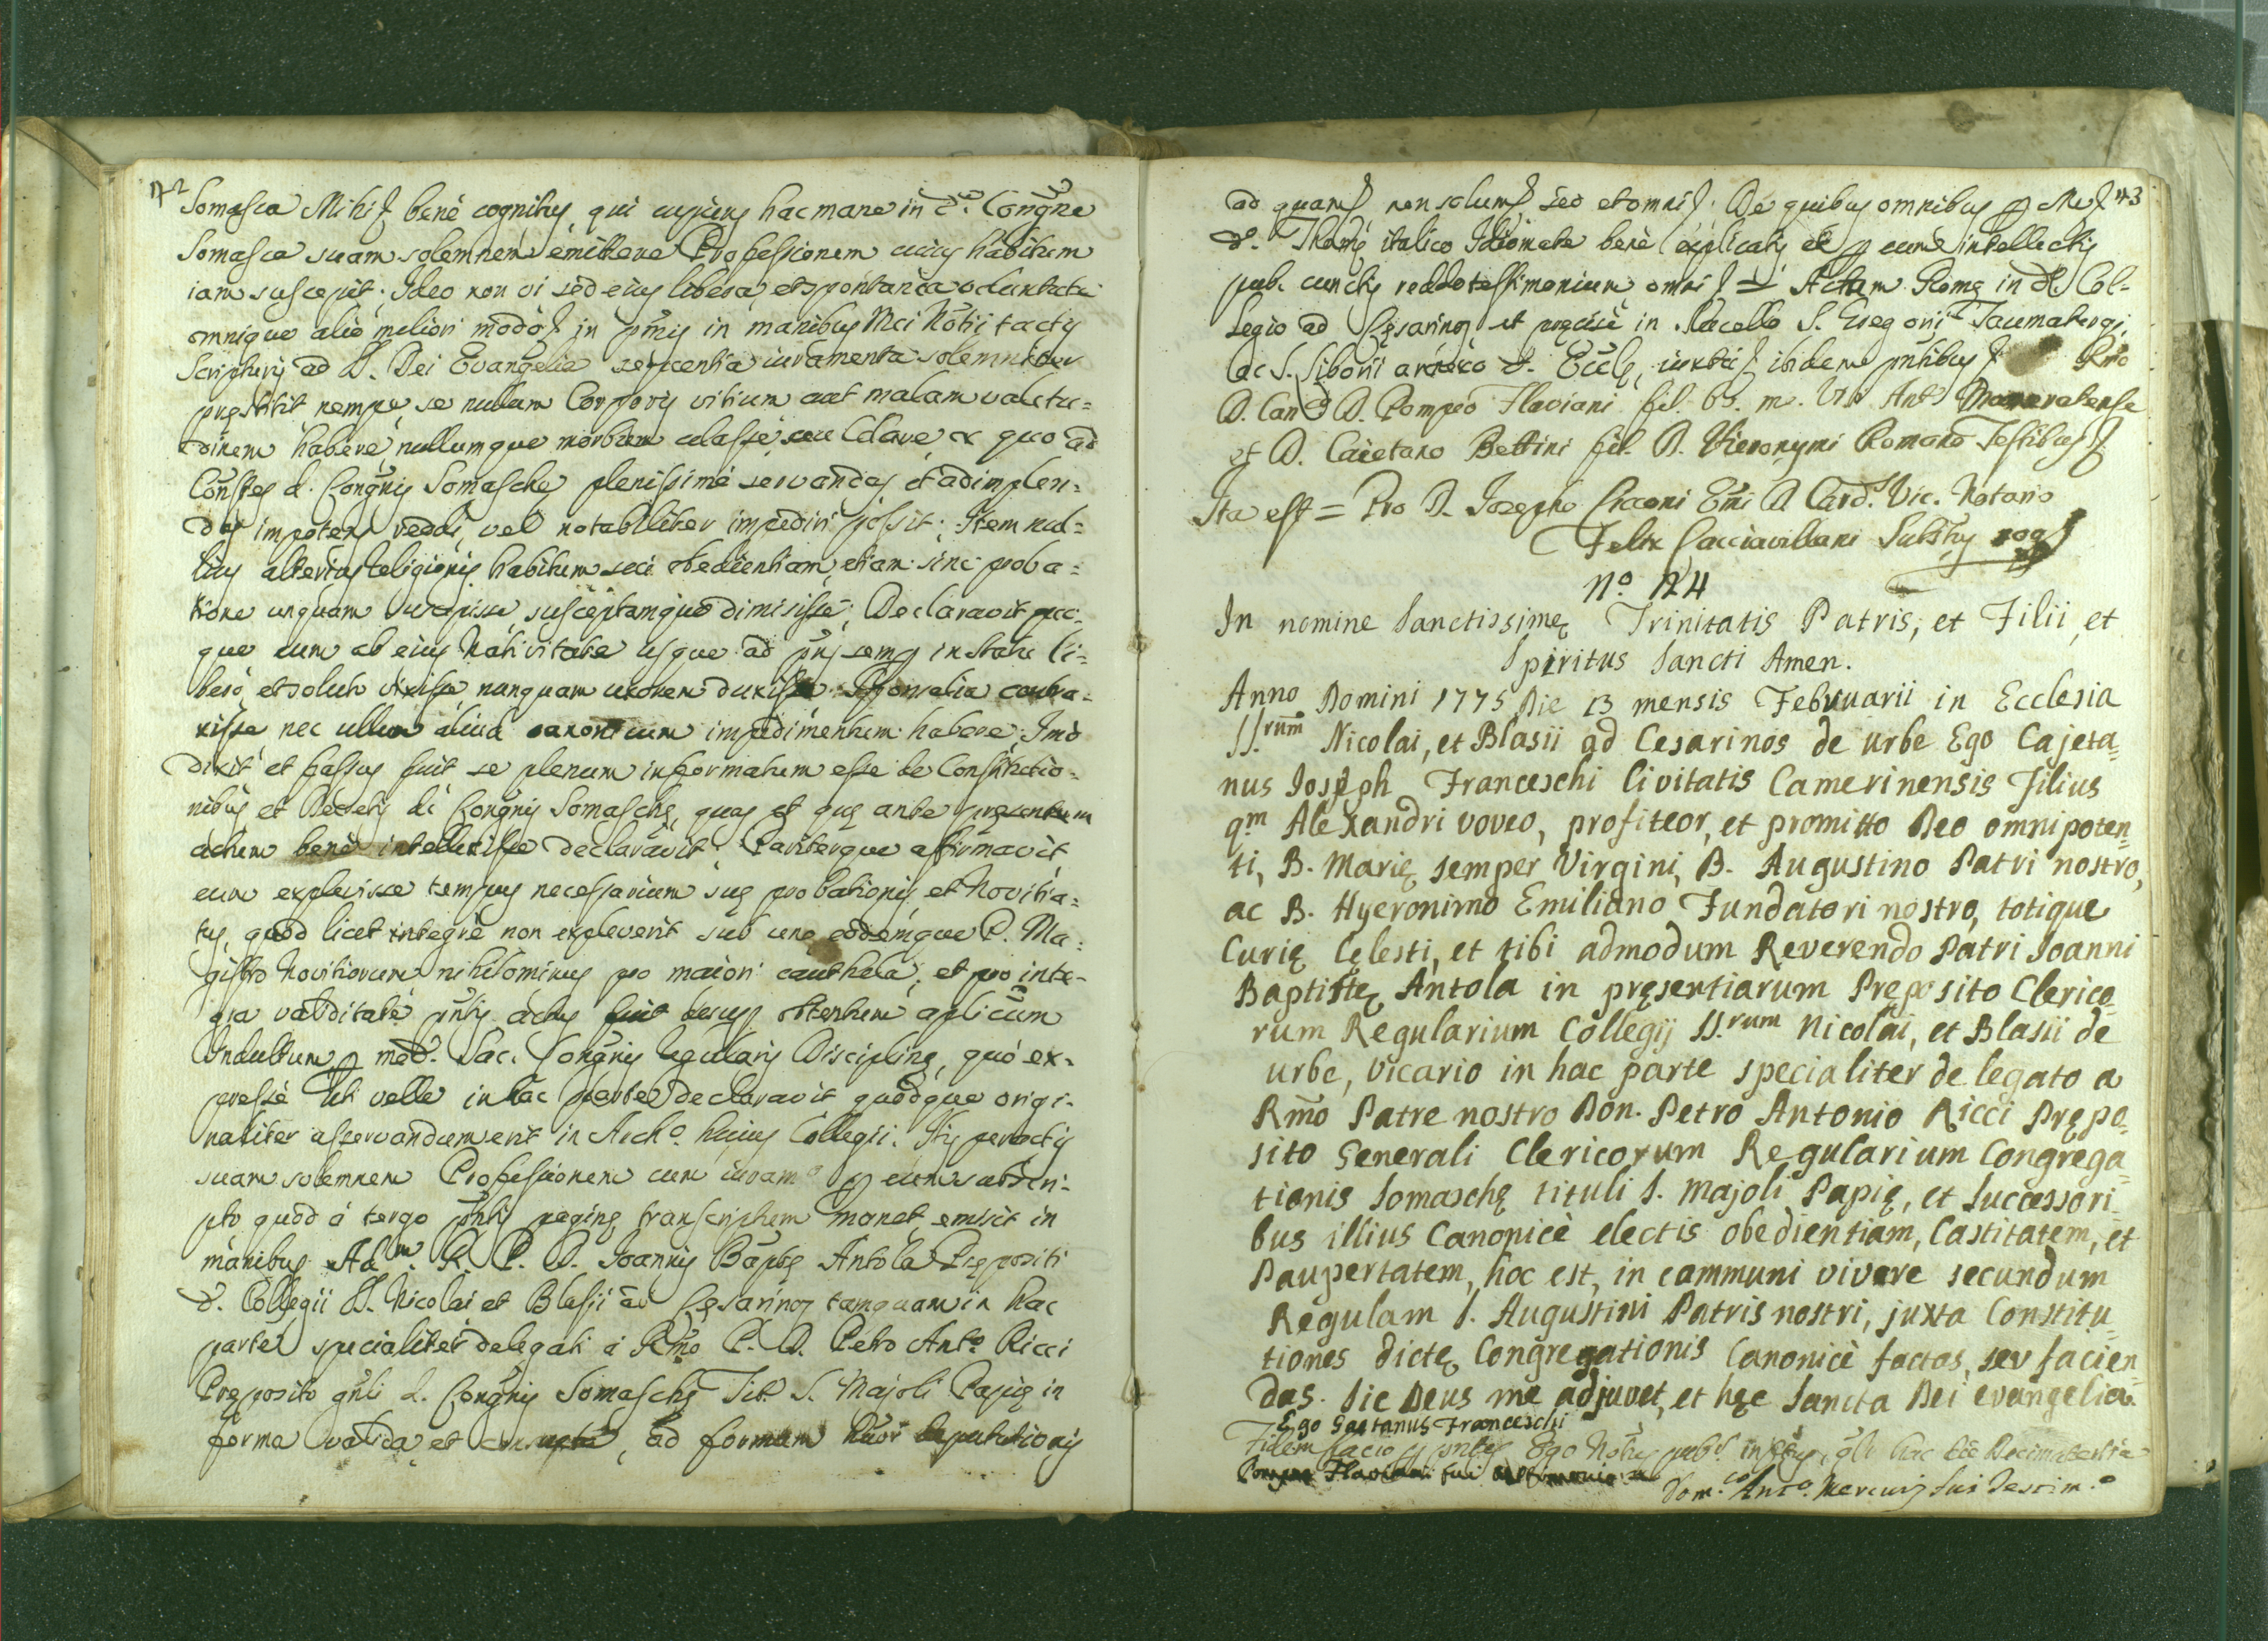 172
Somasca Mihi bene cognitus, qui cupiens hac mane in d.ª Congne
Somasca suam solemnem emittere Professionem cuius habitum
iam suscepit. Ideo non vi sed eius libera, et spontanea voluntate
omnique alio meliori modo in pmis in manibus Mei Notii tactis
Scripturis ad S. Dei Evangelia sequentia iuramenta solemniter
pręstitit nempe se nullum Corporis vitium aut malam valetu=
dinem habere, nullumque morbum celasse, seu celare ex quo ad
Constes d. Congnis Somasche plenissime servandas et adimplen=
das impotens reddi, vel notabiliter impediri possit; Item nul=
lius alterius Religionis habitum seu obedientiam, etiam sine proba=
tione unquam suscepisse, susceptamque dimisisse; Declaravit quo=
que eum ab eius Nativitate usque ad pns semp in statu li=
bero, et soluto vixisse nunquam uxorem duxisse Sponsalia contra=
xisse nec ullum aliud canonicum impedimentum habere; Imo
dixit et fassus fuit se plenum informatum esse de Constitutio=
nibus et Decretis di Congnis Somaschę, quas et quę ante presentem
actum bene intellexisse declaravit; Pariterque affirmavit
eum explevisse tempus necessarium suę probationis et Novitia=
tus, quod licet integrè non expleverit sub uno eodemque P. Ma=
gistro Novitiorum nihilominus pro maiori cauthela, et pro inte=
gra validitate pntis actus fuit desup obtentum aplicum
Indultum p med. Sac. Congnis Regularis Disciplinę, quo ex=
presse uti velle in hac parte declaravit quodque origi=
naliter asservandum erit in Archo huius Collegii. His peractis
suam solemnem Professionem cum iuramo p eum subscri=
pto quod à tergo pntis paginę transcriptum manet emisit in
manibus Adm. R. P. D. Joannis Baptę Antola Prępositi
d. Collegii SS. Nicolai et Blasii ad Cęsarinos tamquam in hac
parte specialiter delegati a Rmo P. D. Petro Anto Ricci
Pręposito gnli d. Congnis Somaschę Tit. S. Majoli Papię in
forma valida et consueta, ad formam suar deputationis
173
ad quam non solum sed et omni. De quibus omnibus p Me
d. italico Idiomate bene explicatis et p eum intellectis
pub. cunctis reddo testimonium omni = Actum Romę in d. Col=
legio ad Cęsarinos et pręcise in Sacello S. Gregorii Taumaturgi,
ac S. Liborii d. Eccle, iuxta ibidem pntibus Rmo
D. Canco D. Pompeo Flaviani fil. bo. me. Anto
et D. Caietano Bettini fil. D. Hieronymi Romano Testibus
Ita est = Pro D. Josepho Cicconi Emi D. Card. Vic. Notario
Felix Cacciavillani Substus rog
No. 124
In nomine Sanctissimę Trinitatis Patris, et Filii, et
Spiritus Sancti Amen.
Anno Domini 1775 Die 13 mensis Februarii in Ecclesia
SS.rum Nicolai, et Blasii ad Cesarinos de urbe Ego Cajeta=
nus Joseph Franceschi Civitatis Camerinensis Filius
q.m Alexandri voveo, profiteor, et promitto Deo omnipoten=
ti, B. Marię semper Virgini, B. Augustino Patri nostro,
ac B. Hyeronimo Emiliano Fundatori nostro, totique
Curię Cęlesti, et tibi admodum Reverendo Patri Joanni
Baptistę Antola in pręsentiarum Pręposito Clerico=
rum Regularium Collegij SS.rum Nicolai, et Blasii de
urbe, vicario in hac parte specialiter delegato a
Rmo Patre nostro Don. Petro Antonio Ricci Prępo=
sito Generali Clericorum Regularium Congrega=
tionis Somaschę tituli S. Majoli Papię, et Successori=
bus illius Canonicè electis obedientiam, Castitatem, et
Paupertatem, hoc est, in communi vivere secundum
Regulam S. Augustini Patris nostri, juxta Constitu=
tiones dictę Congregationis Canonicè factas, seu facien=
das. Sic Deus me adjuvet, et hęc Sancta Dei evangelia.
Ego Gaetanus Franceschi
Fidem facio Ego Notus pubs hac die Decimatertia
Flaviani fui
Dom.co Anto. Mercurj fui Testim.o